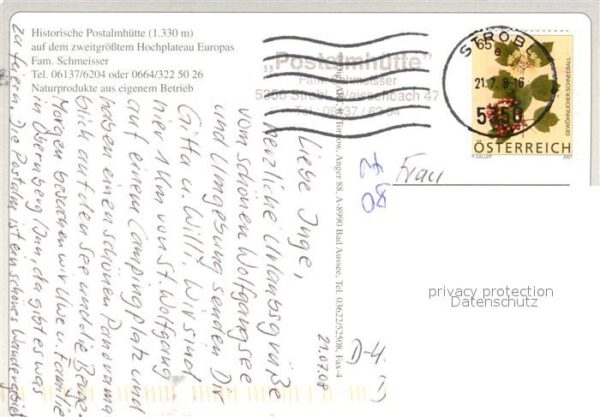 Historische Postalmhütte (1.330 m)
auf dem zweitgrößtem Hochplateau Europas
Fam. Schmeisser
Tel. 06137/6204 oder 0664/322 50 26
Naturprodukte aus eigenem Betrieb
„Postalmhütte"
Fam. Schmeisser
5350 Strobl, Weissenbach 47
Tel. 06137/62 04
STROBL
21.7. 9-16
5350
65
GEWÖHNLICHER SCHNEEBALL
ÖSTERREICH
2007
Frau
21.07.09
Liebe Inge,
herzliche Urlaubsgrüße
vom schönen Wolfgangsee
und Umgebung senden Dir
Gitta u. Willi. Wir sind
hier 1 km von St. Wolfgang
auf einem Campingplatz und
haben einen schönen Panorama
blick auf den See und die Berge.
Morgen besuchen wir Uwe u. Familie
in Obernberg/Inn, da gibt es was
zu feiern. Die Postalm ist ein schönes Wandergebiet
Torrow, Anger 88, A-8990 Bad Aussee, Tel. 03622/52508, Fax-4
D-4
privacy protection
Datenschutz